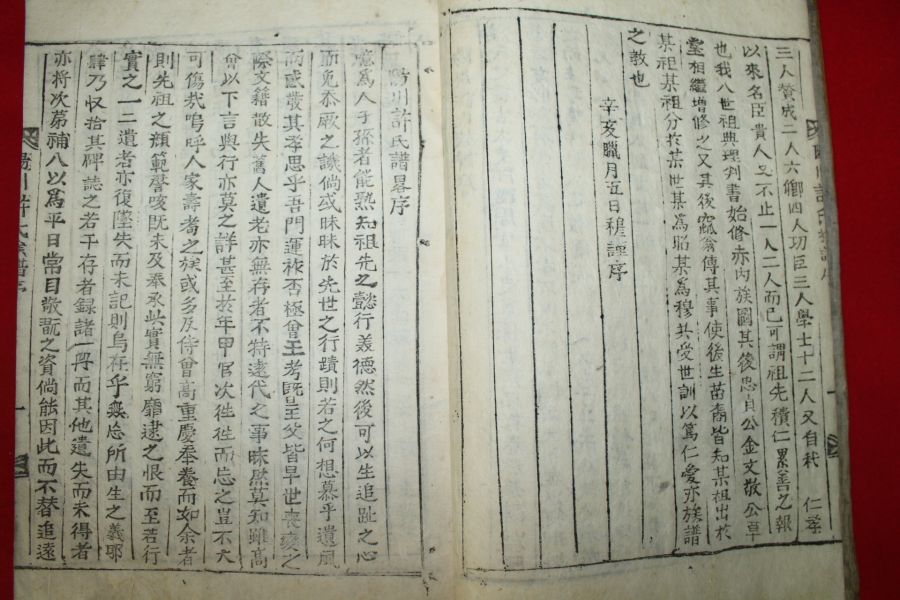 三人贊成二人六卿四人功臣三人學士十二人又自我 仁孝
以來名臣貴人又不止一人二人而已可謂祖先積仁累善之報
也我八世祖典理判書始修赤內族圖其後忠貞公金文敬公草
堂相繼增修之又其後竊翁傳其事使後生苗裔皆知某祖出於
某祖某祖分於某世某爲昭某爲穆共受世訓以篤仁愛亦族譜
之教也
辛亥臘月五日穆謹序
陽川許氏譜畧序
噫爲人子孫者能熟知祖先之懿行美德然後可以生追趾之心
而免忝厥之譏倘或昧昧於先世之行蹟則若之何想慕乎遺風
而感發其孝思乎吾門運祚否極曾王考既呈父皆早世喪變之
際文籍散失舊人遺老亦無存者不特遠代之事昧然莫知雖高
會以下言與行亦莫之詳甚至於年甲官次徃徃而忘之豈不大
可傷哉嗚呼人家壽耉之族或多及侍曾高重慶奉養而如余者
則先祖之顔範謦咳既未及奉承此實無窮靡逮之恨而至若行
實之一二遺者亦復墜失而未記則烏在乎無忘所由生之義耶
肆乃収拾其碑誌之若干存者録諸一冊而其他遺失而未得者
亦将次第補入以爲平日常目敬翫之資倘能因此而不替追遠
陽川許氏族譜序
一